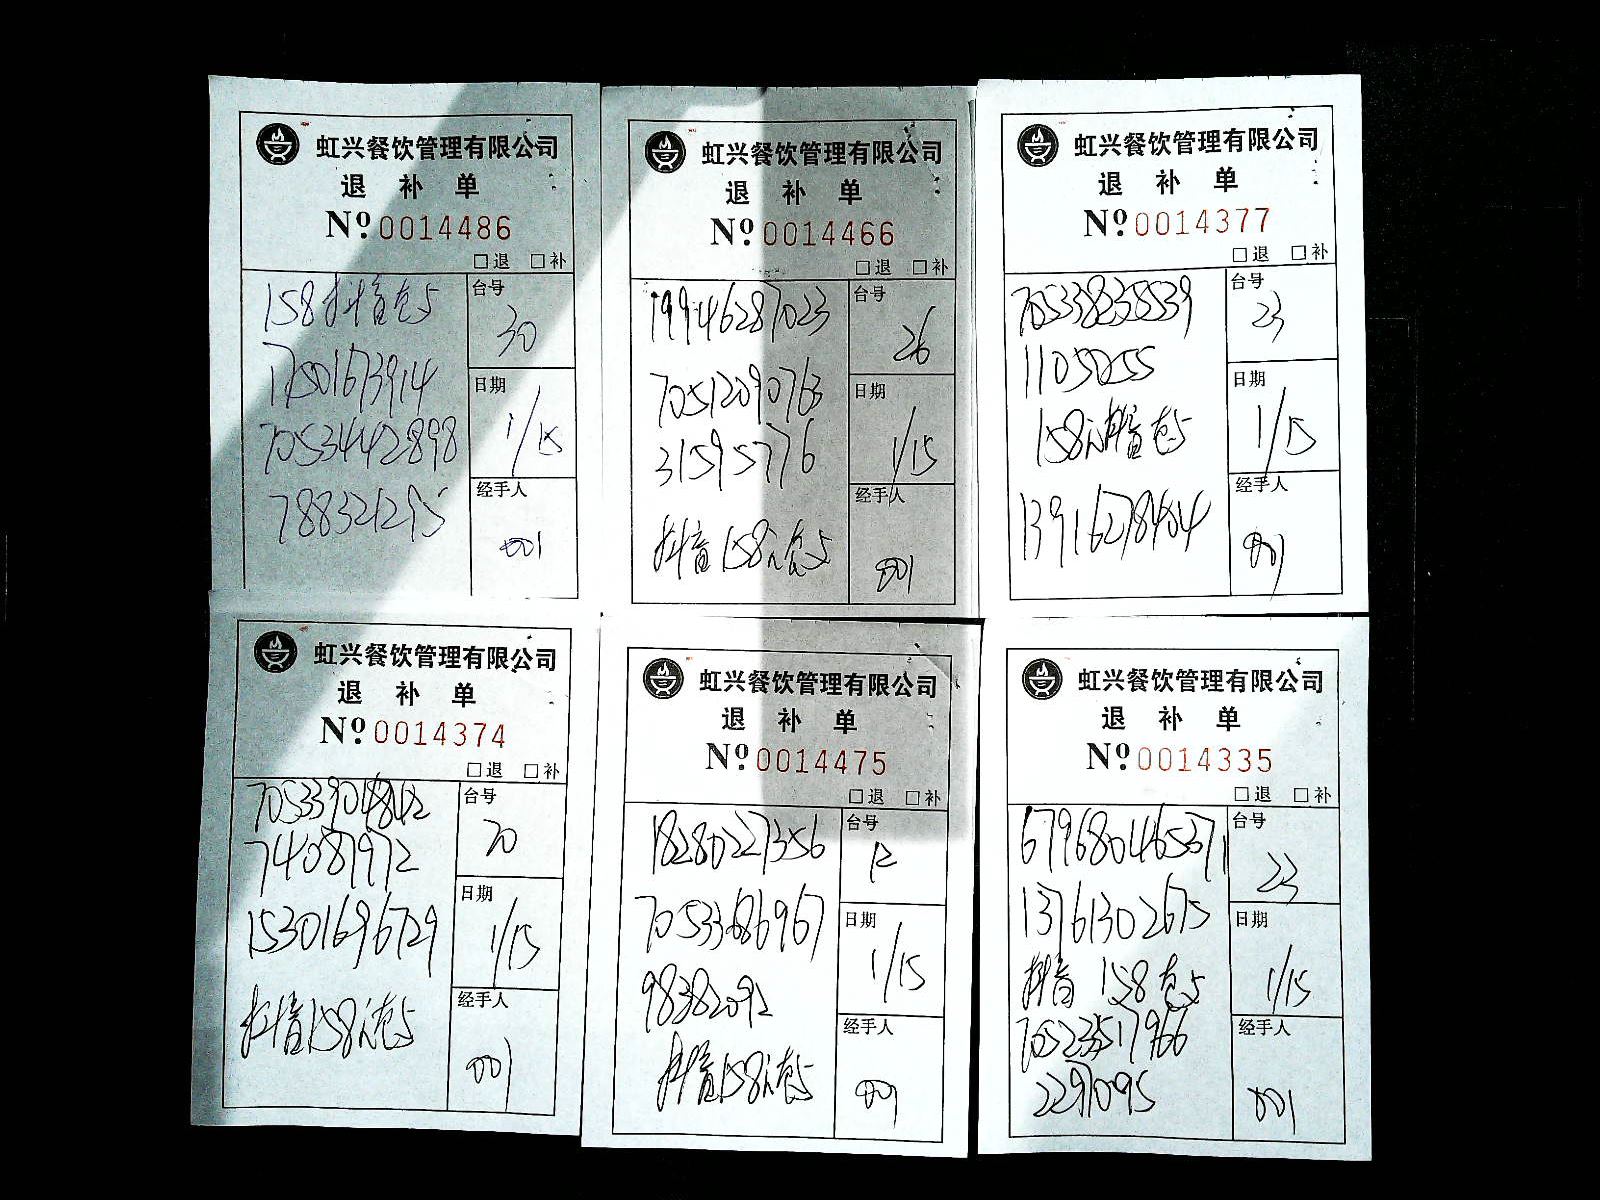 虹兴餐饮管理有限公司
退 补 单
Nº 0014486
□退 □补
158抖音
台号
30
17501673914
日期
1/15
70534442898
788321295
经手人
001
虹兴餐饮管理有限公司
退 补 单
Nº 0014466
□退 □补
19946287023
台号
26
70512090763
日期
1/15
31595776
经手人
抖音158元
001
虹兴餐饮管理有限公司
退 补 单
Nº 0014377
□退 □补
70533823539
台号
23
1105055
日期
1/15
158元抖音
经手人
13916278404
001
虹兴餐饮管理有限公司
退 补 单
Nº 0014374
□退 □补
台号
20
74087972
日期
1/15
15301696729
经手人
抖音158元
001
虹兴餐饮管理有限公司
退 补 单
Nº 0014475
□退 □补
18280227356
台号
12
70533686967
日期
1/15
98382092
经手人
抖音158元
001
虹兴餐饮管理有限公司
退 补 单
Nº 0014335
□退 □补
台号
23
13761302675
日期
抖音 158
1/15
70523517966
经手人
2297095
001